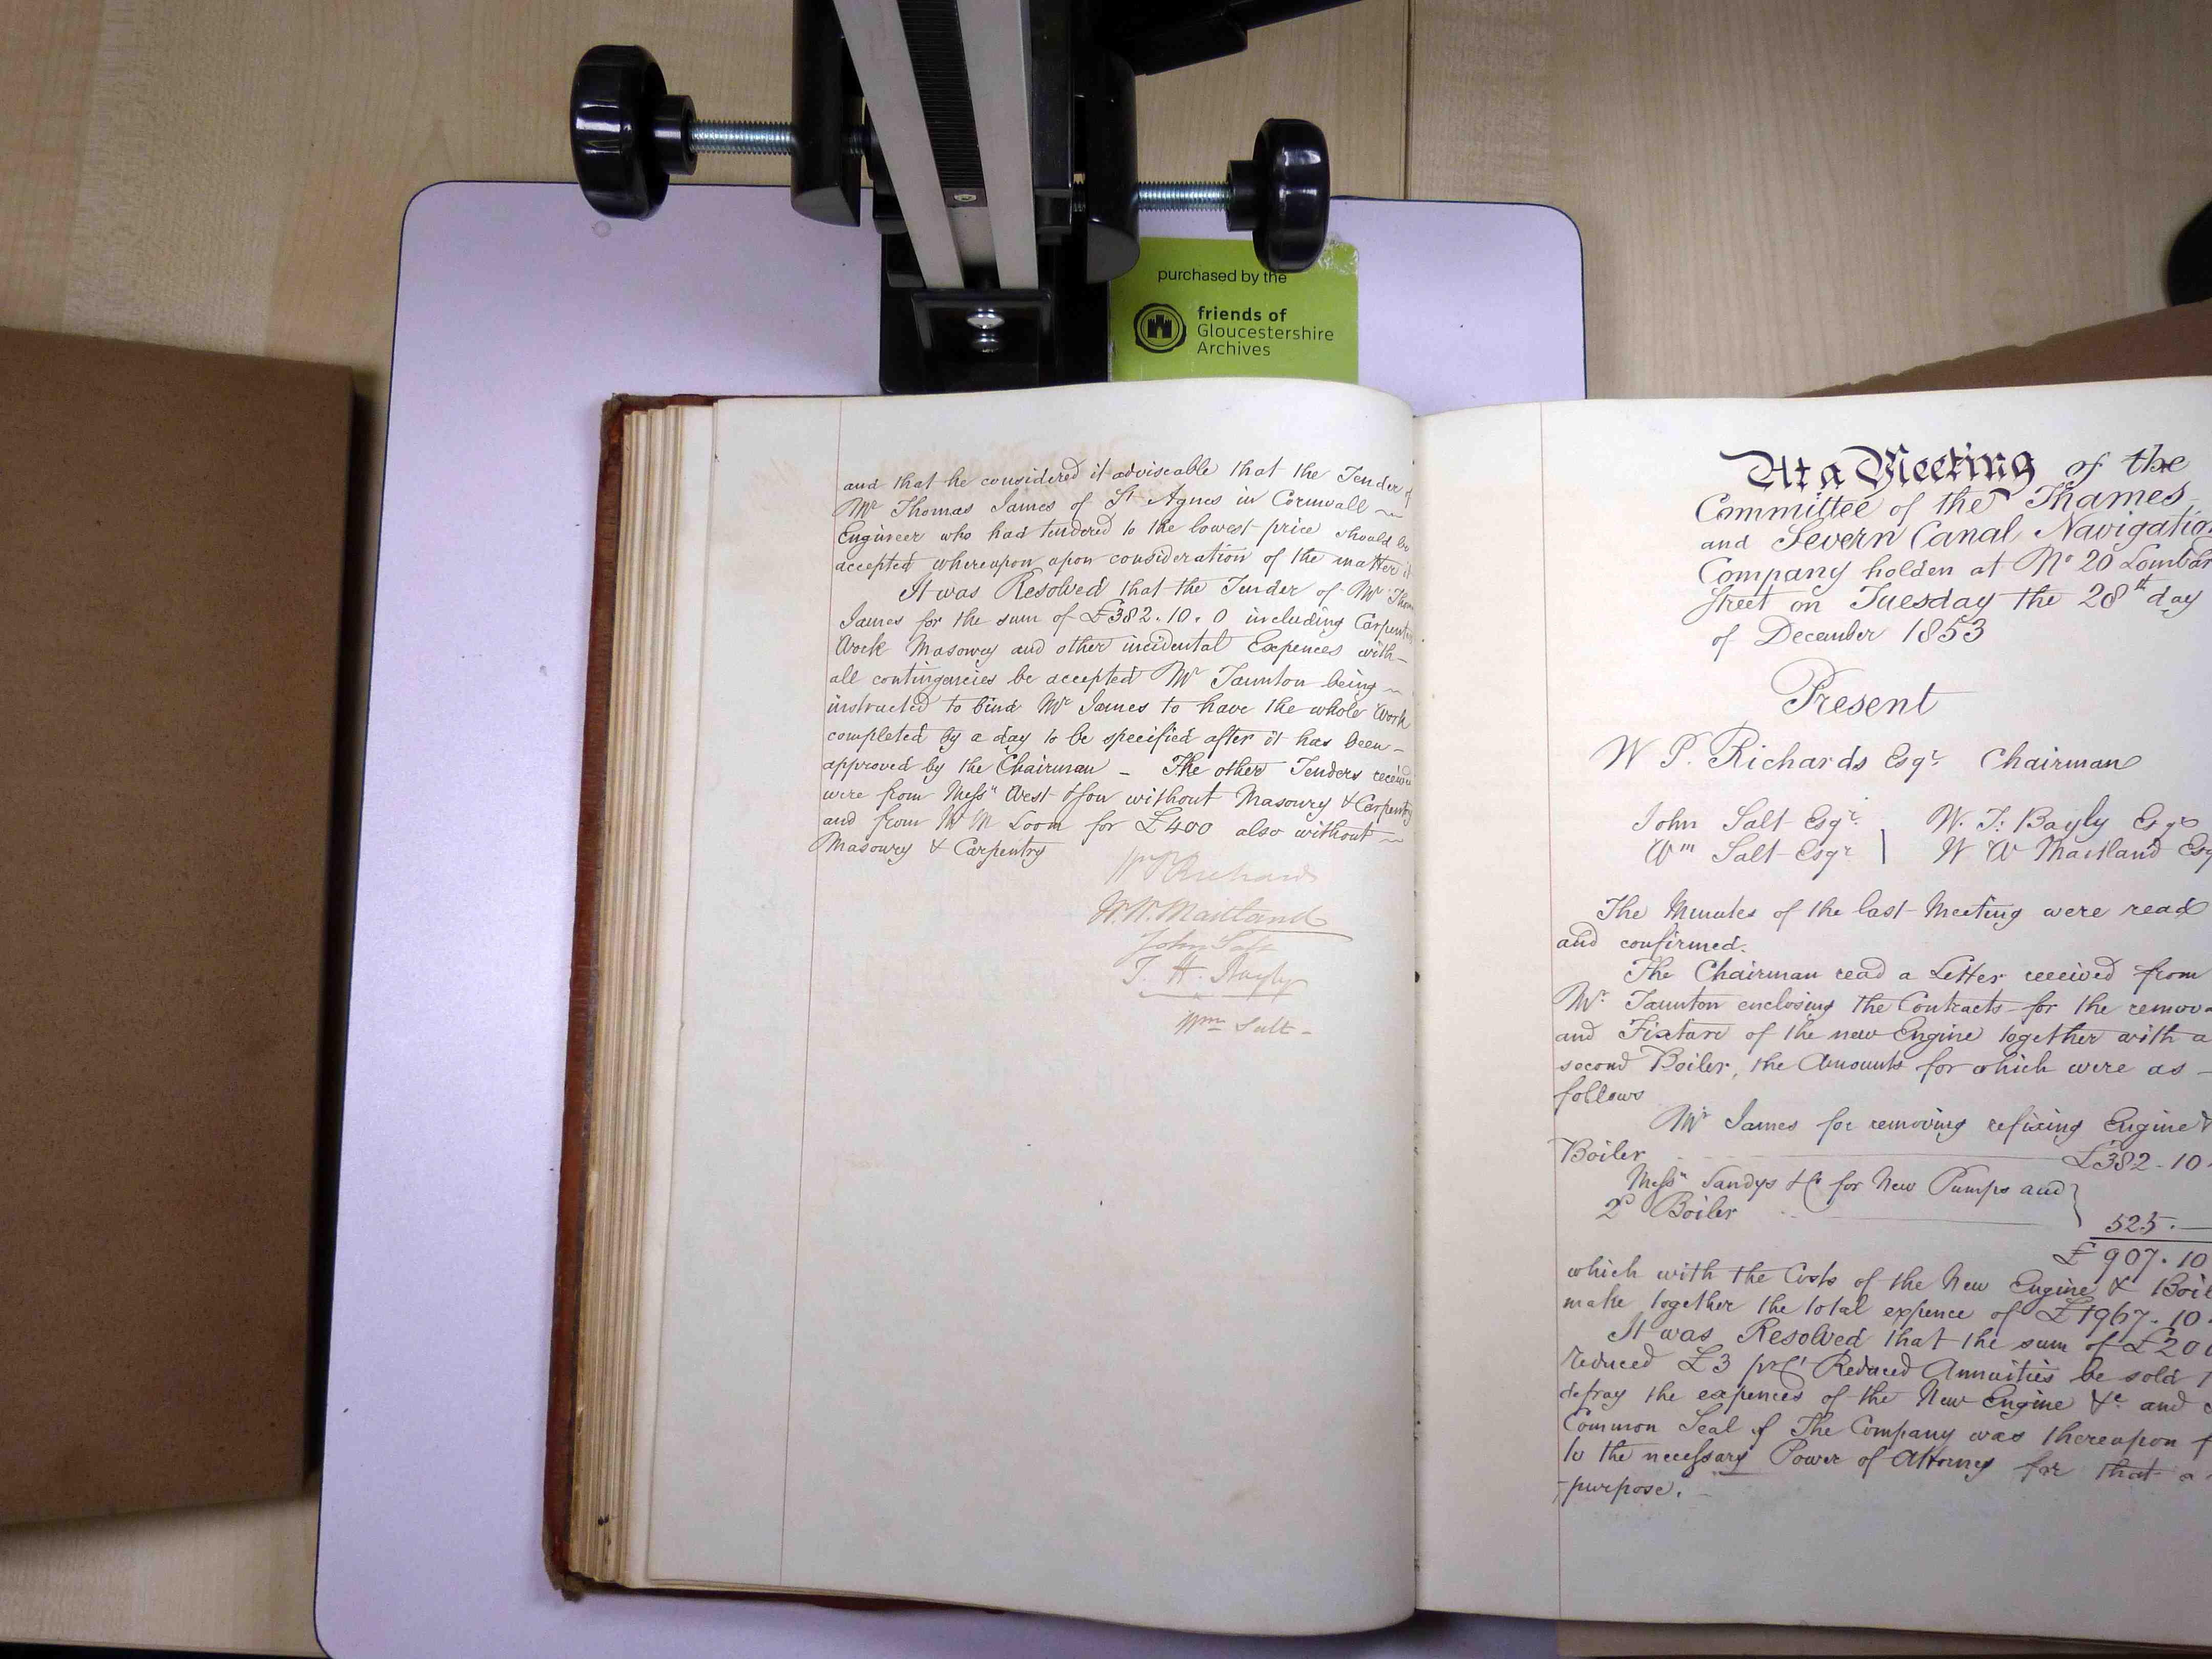 purchased by the
friends of
Gloucestershire
Archives
and that he considered it adviseable that the Tender of
Mr Thomas James of St Agnes in Cornwall
Engineer who had tendered to the lowest price should be
accepted whereupon upon consideration of the matter it
It was Resolved that the Tender of Mr Thom
James for the sum of £382.10.0 including Carpent
Work Masonry and other incidental Expences with
all contingencies be accepted Mr Taunton being
instructed to bind Mr James to have the whole Work
completed by a day to be specified after it has been
approved by the Chairman – The other Tenders receiv
were from Messrs West & Son without Masonry & Carpentry
and from Mr M Loam for £400 also without
Masonry & Carpentry
Wm P Richards
W. W. Maitland
John Salt
T. H. Bayly
Wm Salt –
At a Meeting of the
Committee of the Thames
and Severn Canal Navigation
Company holden at No 20 Lombar
Street on Tuesday the 28th day
of December 1853
Present
W P. Richards Esqr Chairman
John Salt Esqr W. T. Bayly Esqr
Wm Salt Esqr W W Maitland Esq
The Minutes of the last Meeting were read
and confirmed.
The Chairman read a Letter received from
Mr Taunton enclosing the Contracts for the remova
and Fixture of the new Engine together with a
second Boiler, the Amounts for which were as –
follows
Mr James for removing refixing Engine &
Boiler £382.10.
Messrs Sandys & Co for New Pumps and
2d Boiler
525. –
£907.10
which with the Costs of the New Engine & Boil
make together the total expence of £1967.10.
It was Resolved that the sum of £200
reduced £3 pr Ct Reduced Annuities be sold
defray the expences of the New Engine &c and
Common Seal of The Company was thereupon
to the necessary Power of Attorney for that
purpose. –